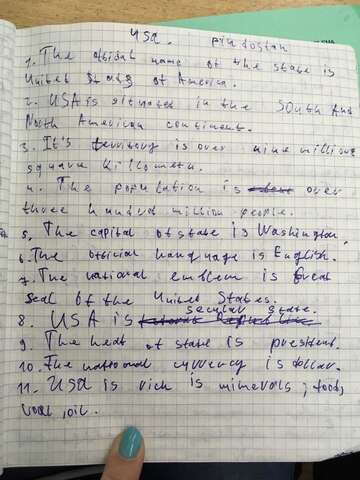 USA. pindostan
1. The official name of the state is
United States of America.
2. USA is situated in the South And
North American continent.
3. It's territory is over nine millions
square killometrs.
4. The population is over
three hundred million people.
5. The capital of state is Washington.
6. The official language is English.
7. The national emblem is Great
Seal of the United States.
secular state.
8. USA is
9. The head of state is president.
10. The national currency is dollar.
11. USA is rich is minerals, food,
coal, oil.